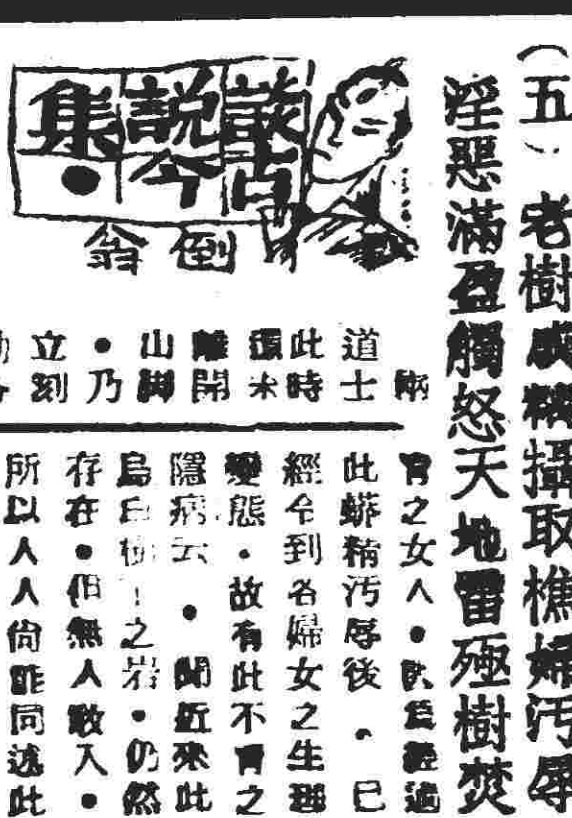 （五）老樹成精攝取樵婦汚辱
淫惡滿盈觸怒天地雷殛樹焚
談古
說今
集●
倒翁
兩
道士
此時
頭未
離開
山脚
●乃
立刻
育之女人●爲經過
此蟒精汚辱後、已
經令到各婦女之生理
變態．故有此不育之
隱病云●聞近來此
之岩．仍然
存在●但無人敢入●
所以人人尙能同述此